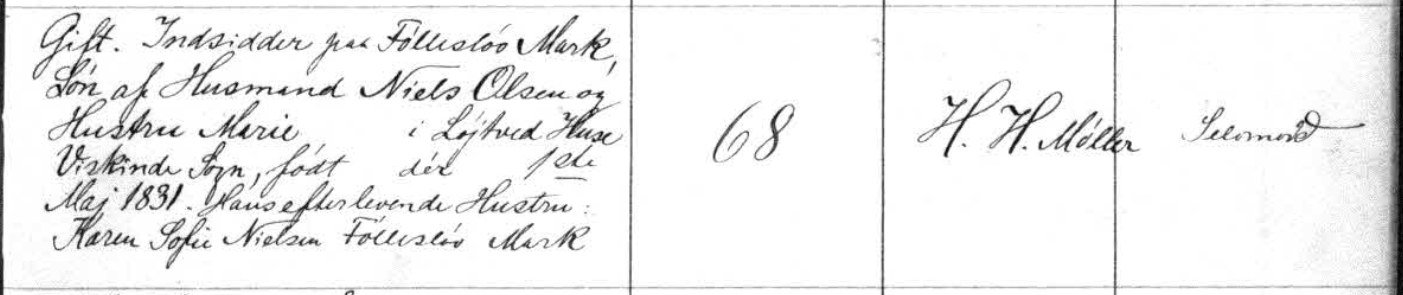 Gift. Indsidder paa Föllesløv Mark,
Søn af Husmand Niels Olsen og
Hustru Marie i Løjtved Huse
Viskinde Sogn, født dér 1ste
Maj 1831. Hans efterlevende Hustru:
Karen Sofie Nielsen Föllesløv Mark
68
H. H. Møller